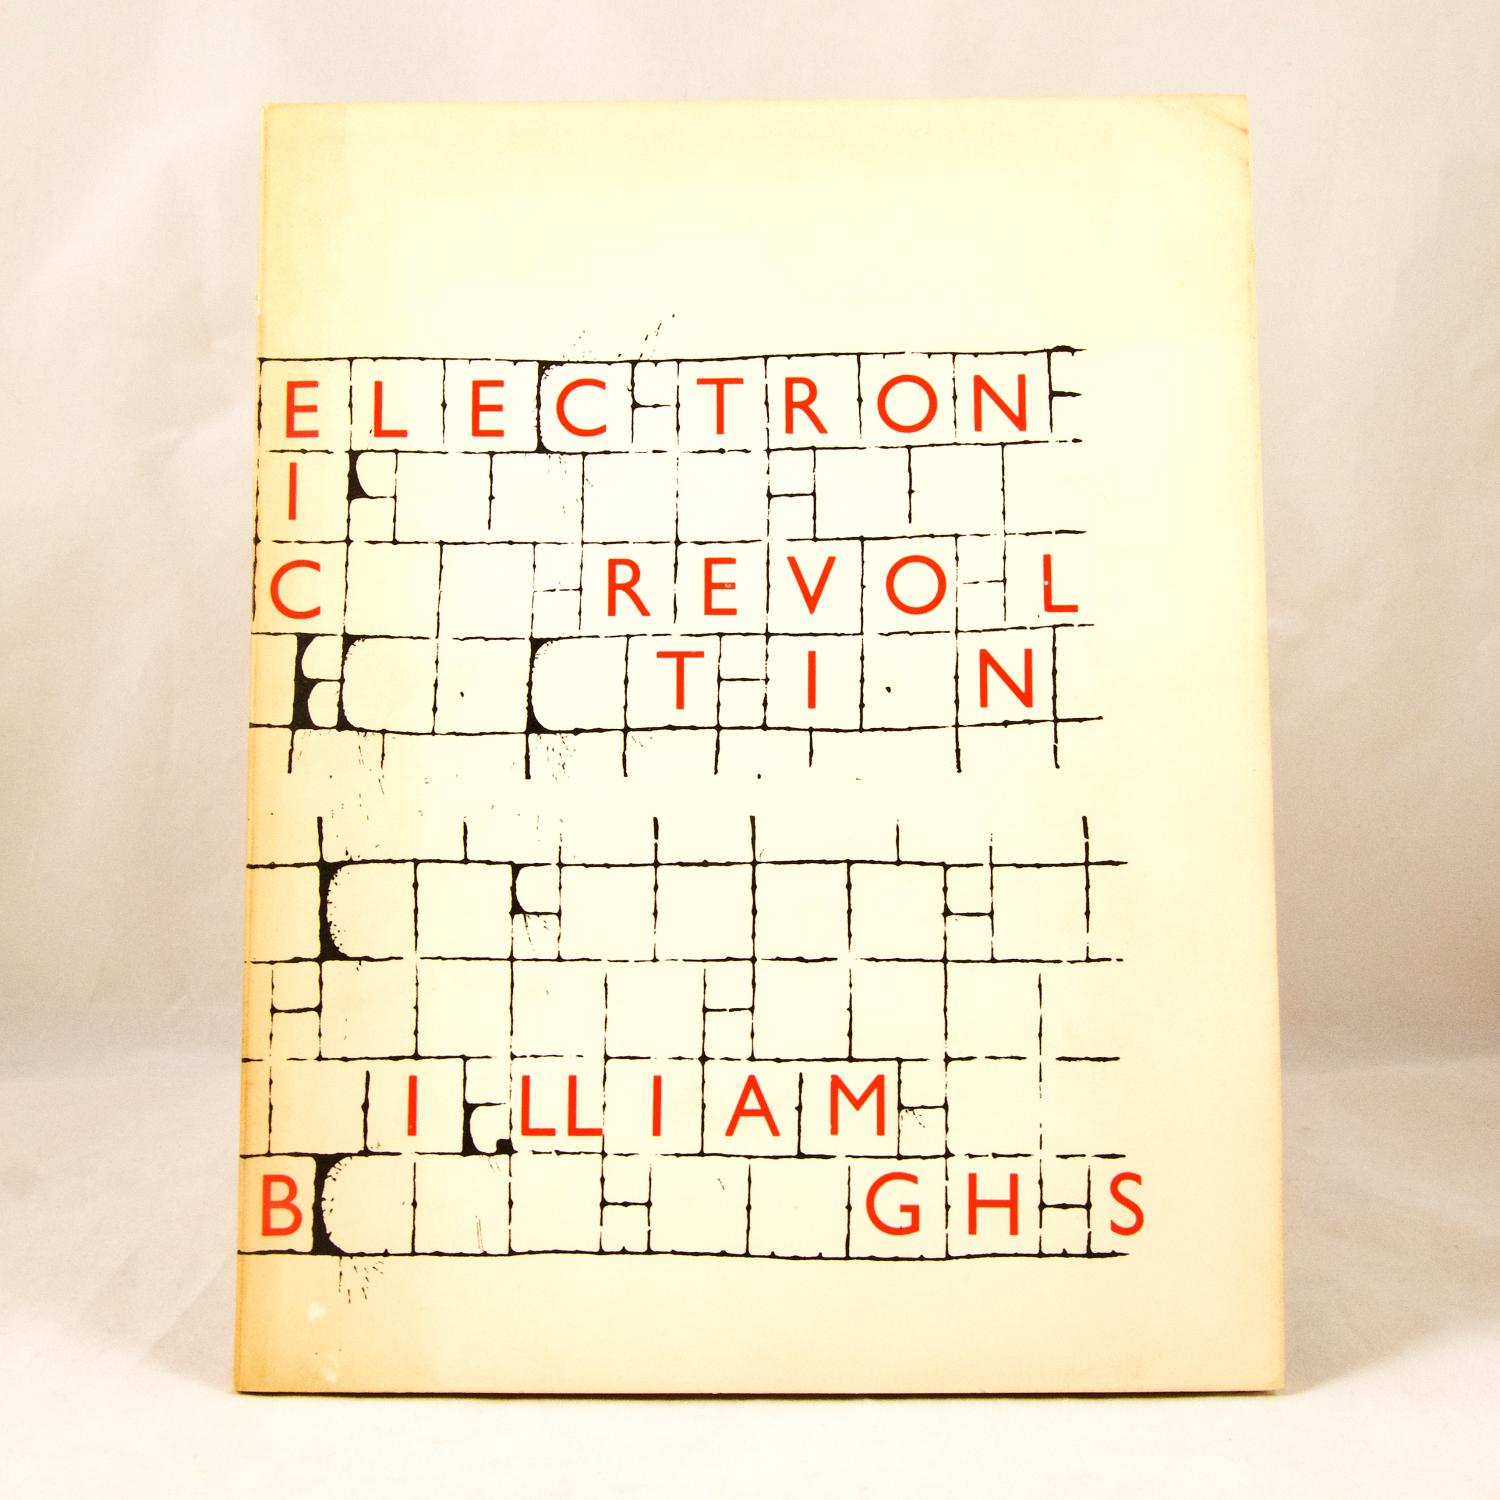 ELECTRON
I
C REVOL
T I N
ILLIAM
B GH S